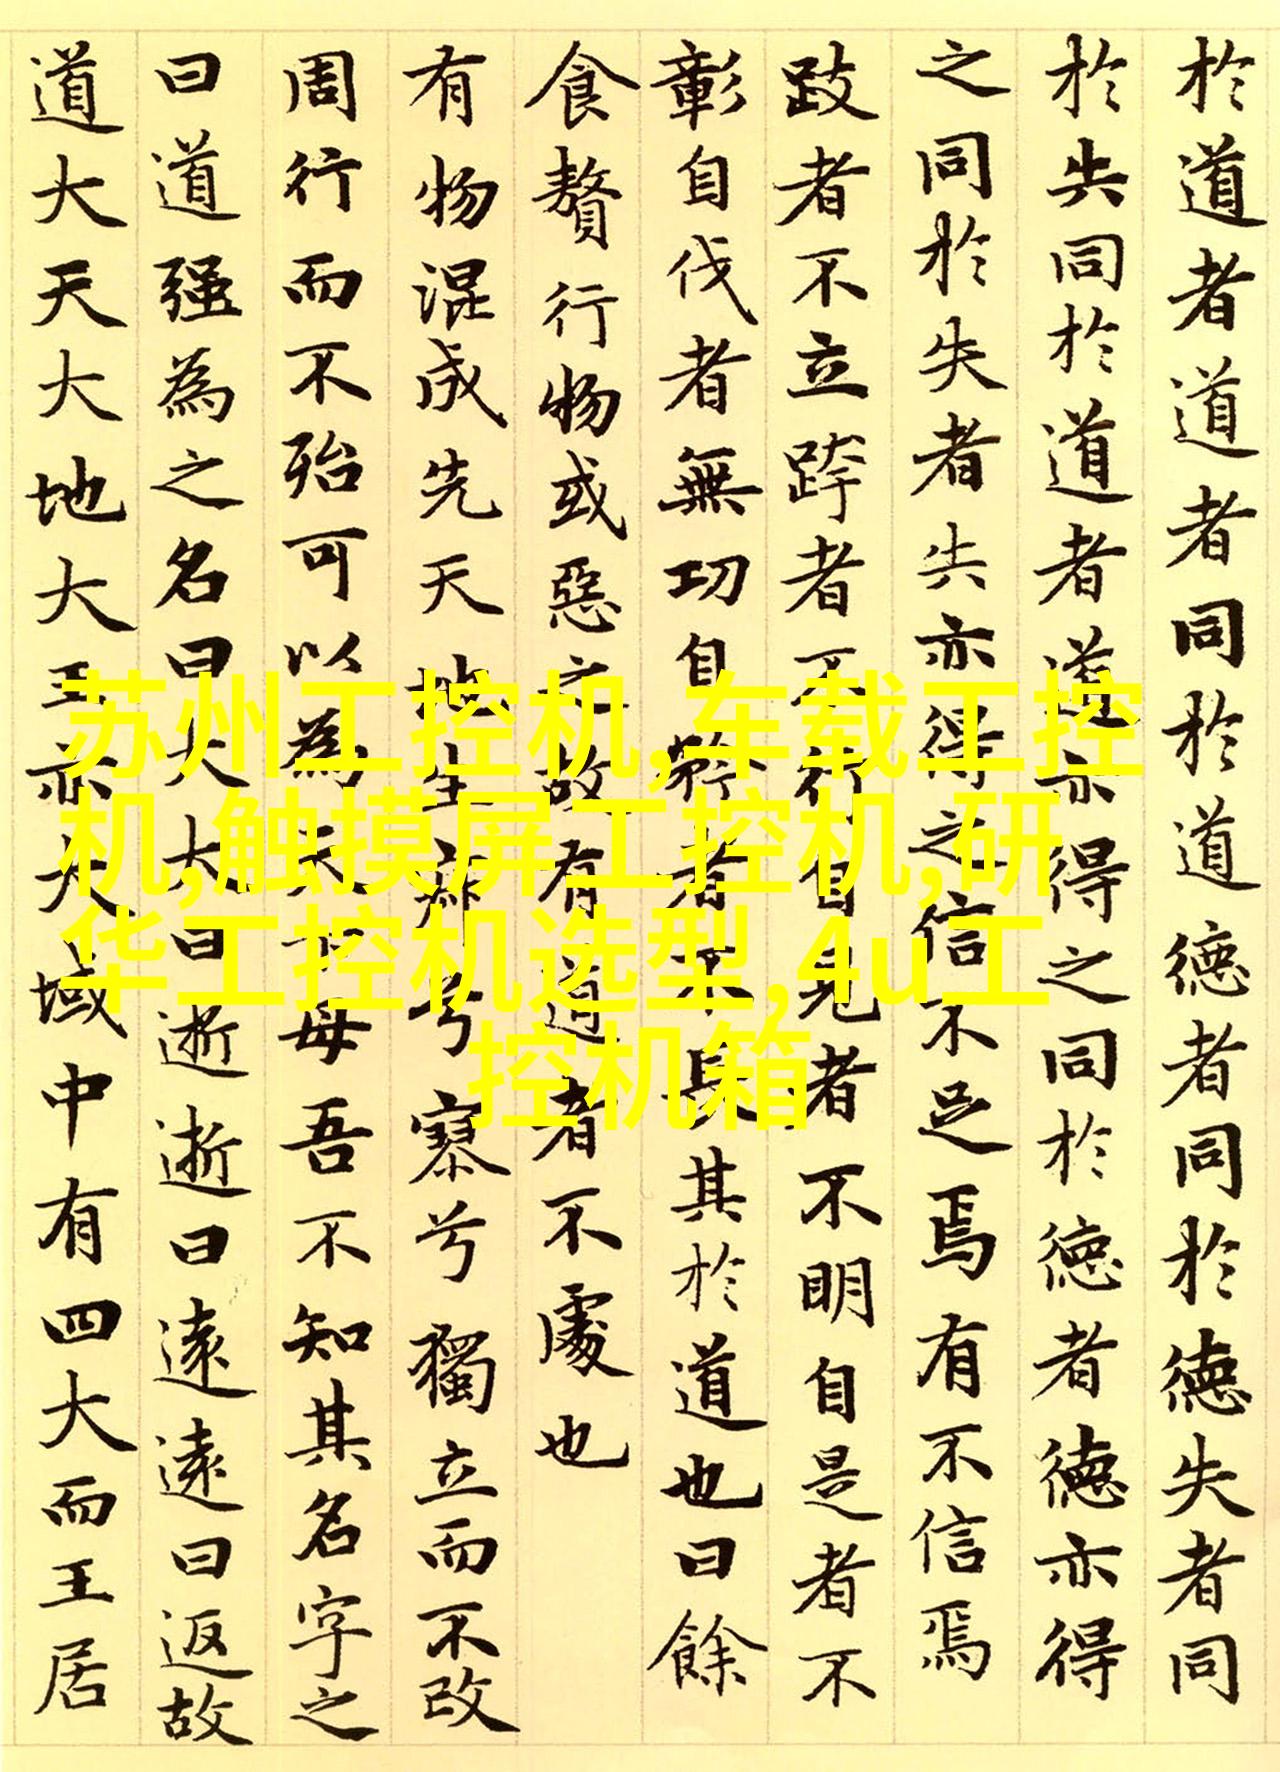 於道者道者同於道德者同於德失者同
於失同於道者道亦得之同於德者德亦得
之同於失者失亦得之信不足焉有不信焉
跂者不立跨者不行自見者不明自是者不
彰自伐者無功自矜者不長其於道也曰餘
食贅行物或惡之故有道者不處也
有物混成先天地生寂兮寥兮獨立而不改
周行而不殆可以為天下母吾不知其名字之
曰道强為之名曰大大曰逝逝曰遠遠曰返故
道大天大地大王亦大域中有四大而王居
苏州工控机,车载工控
机,触摸屏工控机,研
华工控机选型,4u工
控机箱